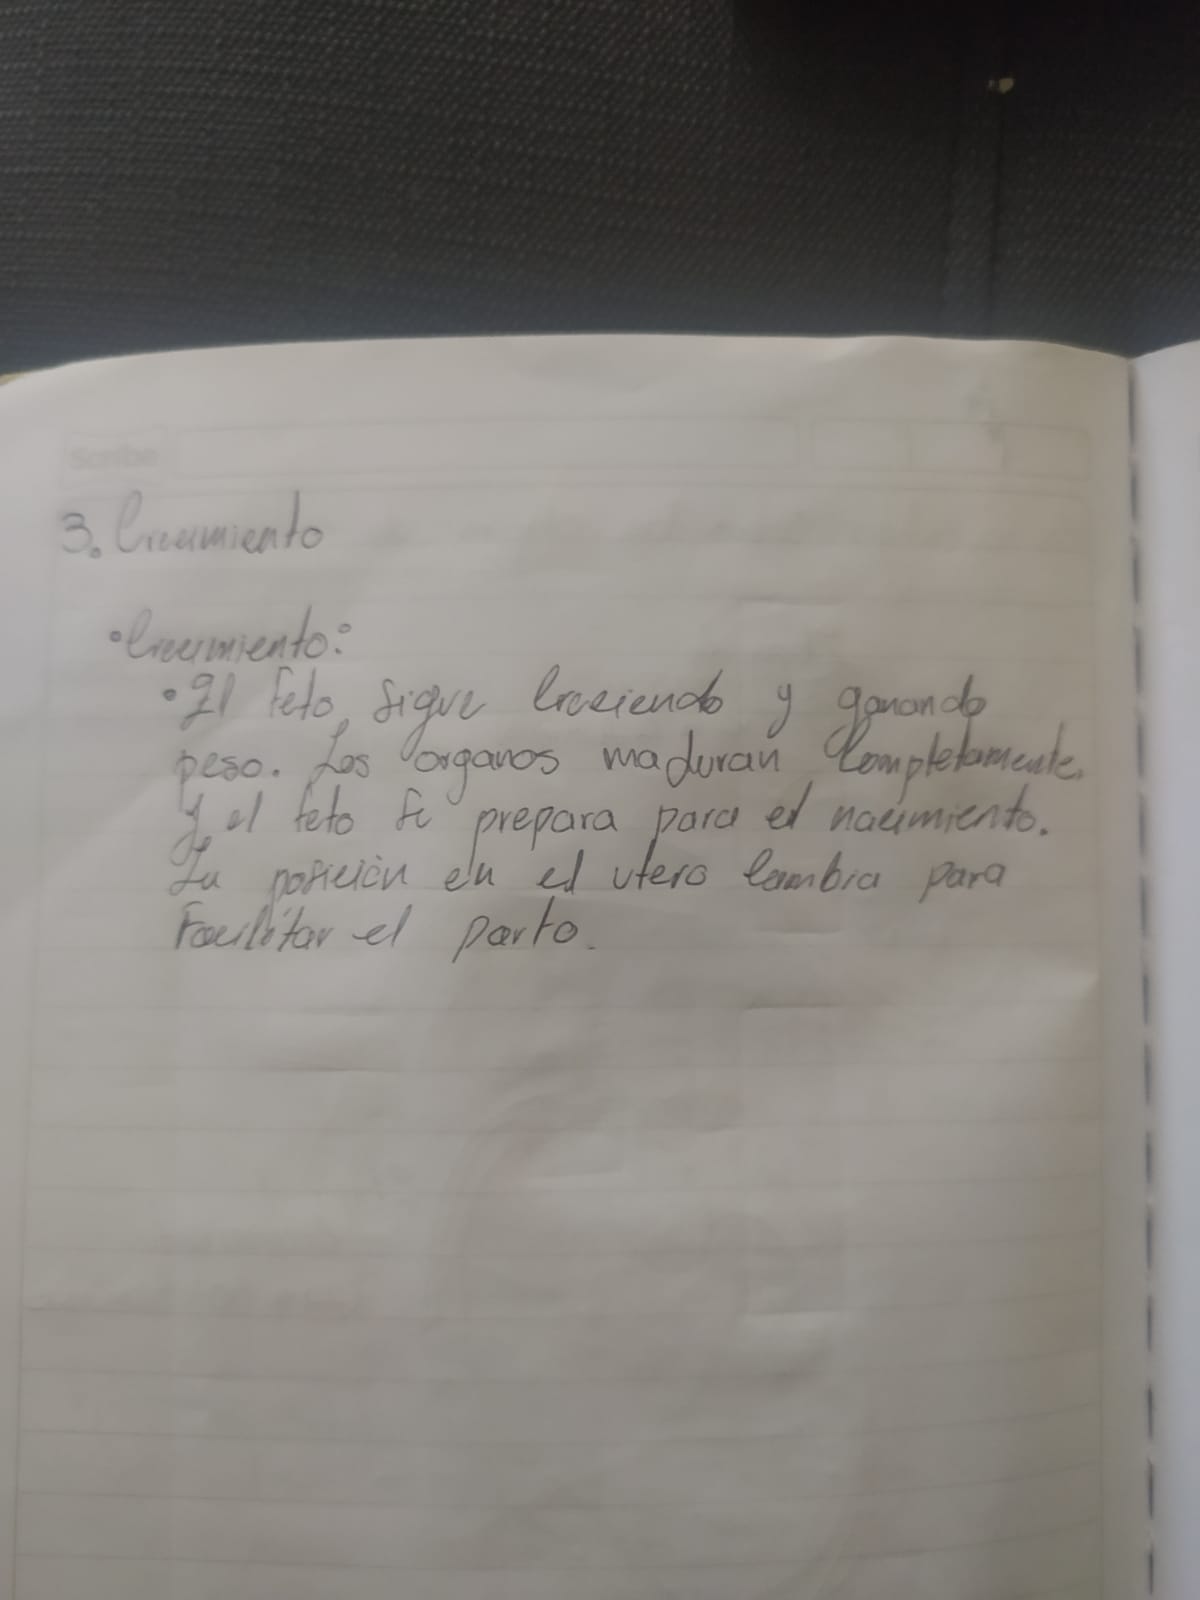 Scribe
3. Crecimiento
• Crecimiento:
• El feto sigue creciendo y ganando
peso. Los organos maduran completamente.
Y el feto se prepara para el nacimiento.
Su posición en el utero cambia para
Facilitar el parto.